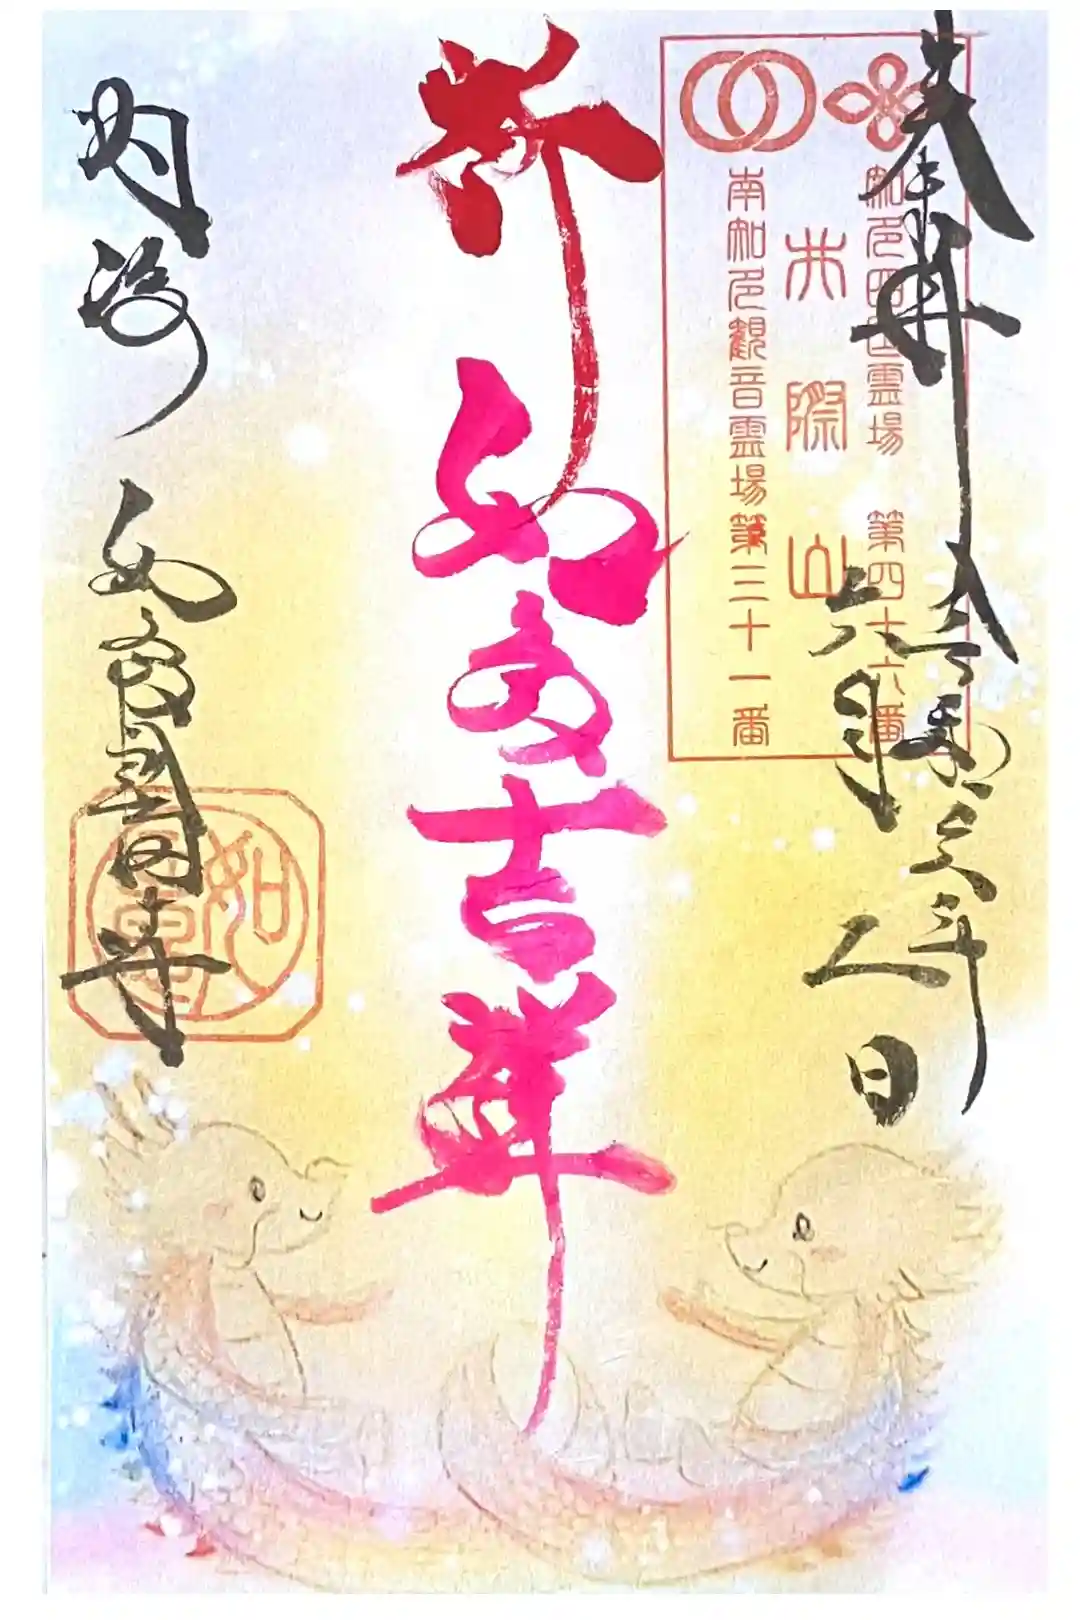 奉拝
知多四国霊場 第四十六番
井際山
南知多観音霊場第三十一番
令和
六月
日
祈 如意吉祥
内海 如意輪寺